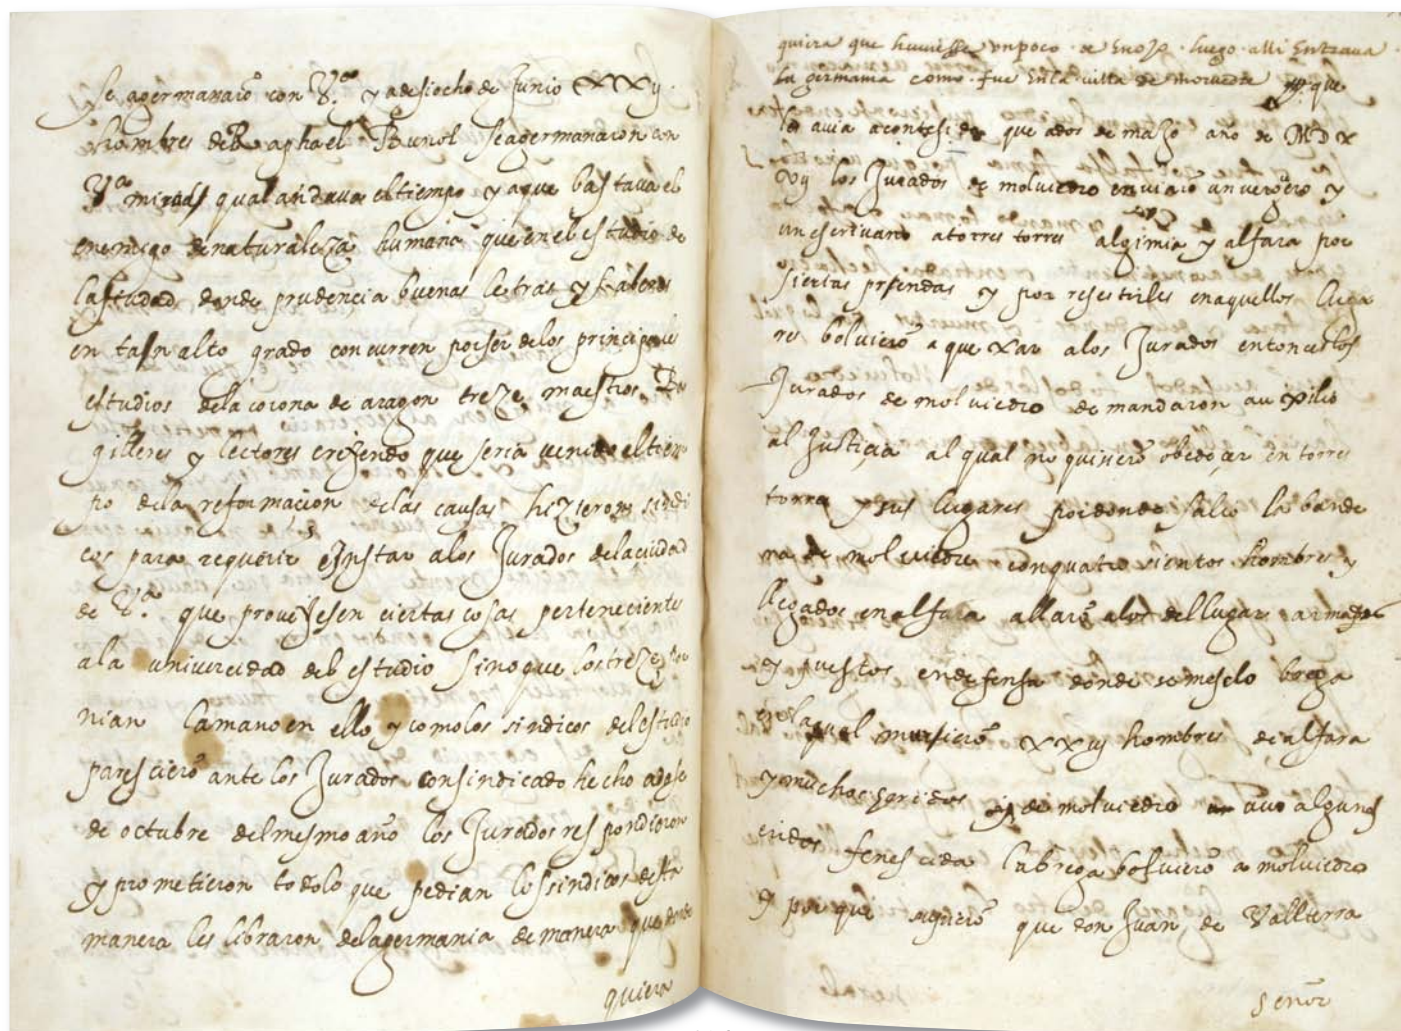 se agermanarõ con V.ª y adesiocho de Junio XXij
hombres de Raphael Bunol se agermanaron con
V.ª mirad qual andava el tiempo y aque bastava el
enemigo de naturaleza humana que en el estudio de
la siudad donde prudencia buenas letras y saberes
en tan alto grado concurren por ser delos principales
estudios dela corona de aragon treze maestros Ba
gilleres y lectores creyendo que seria venido el tiem
po dela reformaçion delas causas hizieron sindi
cos para requerir e Instar alos Jurados dela çiudad
de V.ª que proveyesen ciertas cosas perteneciente
ala univercidad del estudio sino que los treze po
nian la mano en ello y como los sindicos del estudio
paresciero ante los Jurados con sindicado hecho a
de octubre del mesmo año los Jurados respondieron
y prometieron todo lo que pedian los sindicos desta
manera les libraron dela germania de manera que donde
quiera
quiera que huviesse un poco de Enojo luego alli Entrava
la germania como fue Enla villa de morvedre que
les avia acontesido que ados de março año de MDX
Vij los Jurados de molviedro enviarõ un verguero y
un escrivano a torres torres algimia y alfara por
siertas prendas y por resestirles en aquellos luga
res bolvierõ a quexar alos Jurados entonces los
Jurados de molviedro demandaron auxilio
al Justiçia al qual no quisierõ obedeçer en torres
torres y sus lugares por donde salio la bande
ra de molviedro con quatro sientos hombres y
llegados en alfara allarõ alos del lugar armados
y puestos en defensa donde se mesclo brega
en la qual murierõ XXvij hombres de alfara
y muchos heridos y de molviedro uvo algunos
eridos fenescida la brega bolvierõ a molviedro
y por que supierõ que don Juan de Vallterra
señor